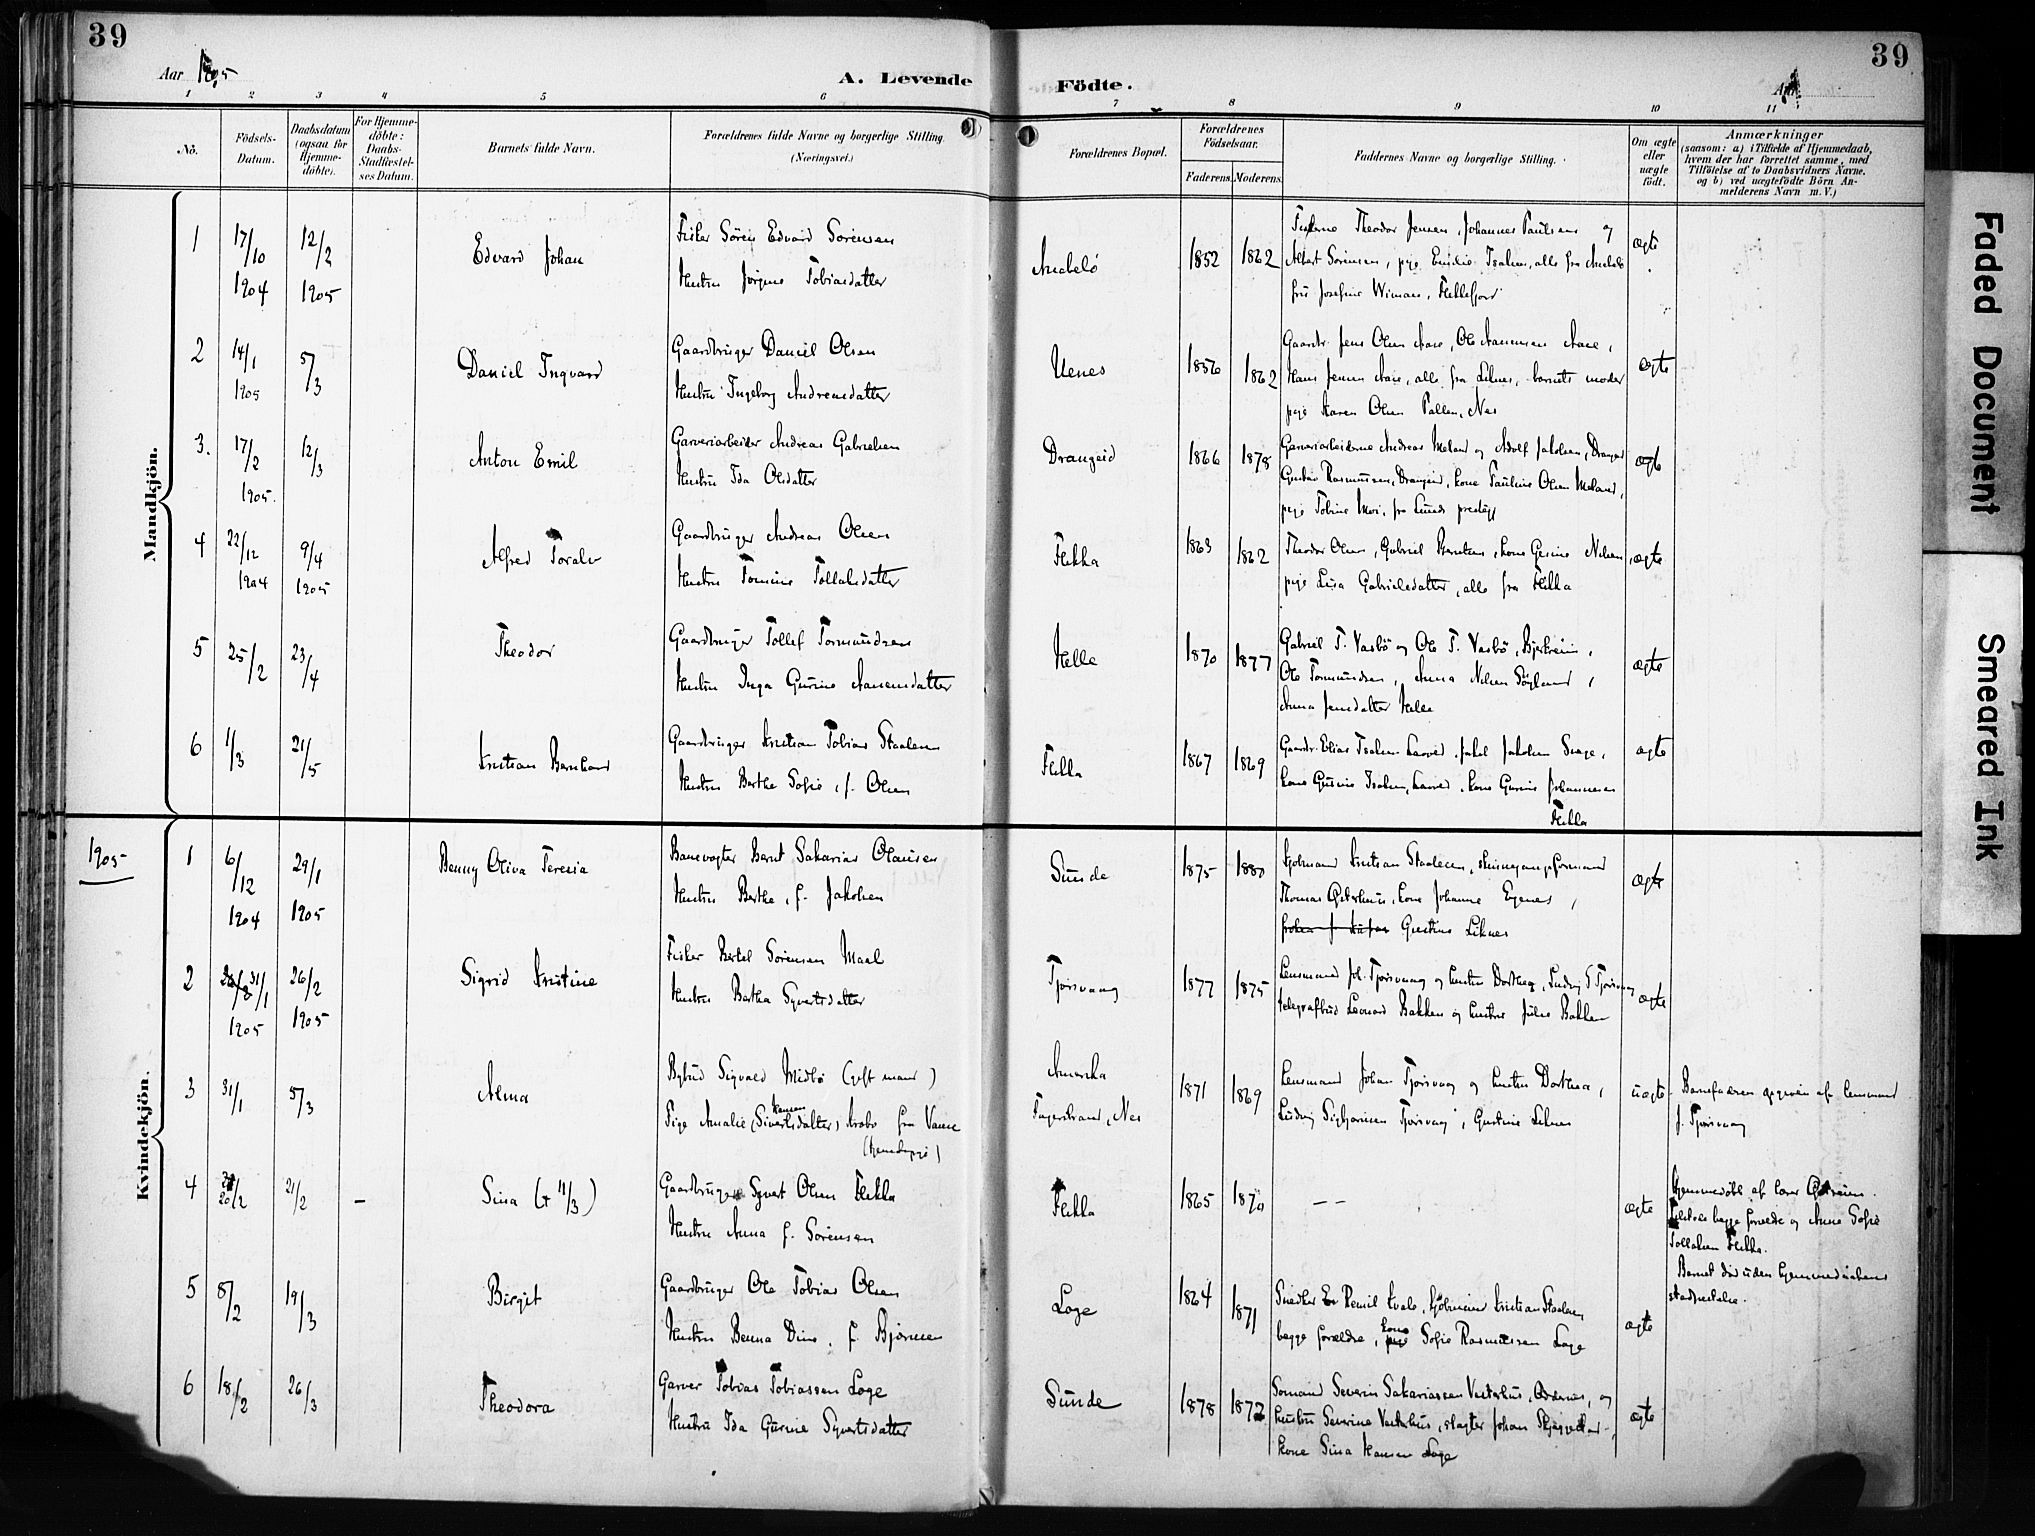 39
39
Aar 1905
A. Levende Födte.
Aar
1 2 3 4 5 6 7 8 9 10 11
No.
Födsels-Datum.
Daabsdatum (ogsaa for Hjemme-döbte).
For Hjemme-döbte: Daabs-Stadfæstel-ses Datum.
Barnets fulde Navn.
Forældrenes fulde Navne og borgerlige Stilling. (Næringsvei.)
Forældrenes Bopæl.
Forældrenes Födselsaar.
Faderens. Moderens.
Faddernes Navne og borgerlige Stilling.
Om ægte eller uægte födt.
Anmærkninger
(saasom: a) i Tilfælde af Hjemmedaab,
hvem der har forrettet samme, med
Tilföielse af to Daabsvidners Navne.
og b) ved uægtefödte Börn An-
melderens Navn m. V.)
Mandkjön.
1 17/10 1904 12/2 1905 Edvard Johan
Fisker Sören Edvard Sörensen
Hustru Jörgine Tobiasdatter
Andabelö 1852 1862
Theodor Jensen, Johannes Paulsen og
Albert Sörensen, pige Emilie Isaksen, alle fra Andabelö
fru Josefine Wiman, Flekkefjord
ægte
2 14/1 1905 5/3 Daniel Ingvard
Gaardbruger Daniel Olsen
Hustru Ingeborg Andreasdatter
Uenes 1856 1862
Gaardbr. Jens Olsen Aase, Ole Aanensen Aase,
Hans Jensen Aase, alle fra Liknes, barnets moder
pige Karen Olsen Pallen, Nes
ægte
3. 17/2 1905. 12/3 Anton Emil
Garveriarbeider Andreas Gabrielsen
Hustru Ida Olsdatter
Drangeid 1866 1878
Garveriarbeiderne Andreas Meland og Adolf Jakobsen, Drangeid
Gustav Rasmussen, Drangeid, kone Pauline Olsen Meland,
pige Tobine Moi, fra Lunds prestegj
ægte
4 22/12 1904 9/4 1905 Alfred Toralv
Gaardbruger Andreas Olsen
Hustru Tomine Tollaksdatter
Flikka 1863 1862
Theodor Olsen, Gabriel Berntsen, kone Gesine Nilsen,
pige Lisa Gabrielsdatter, alle fra Flikka
ægte
5 25/2 23/4 Theodor
Gaardbruger Tollef Tormundsen
Hustru Inga Gurine Aanensdatter
Helle 1870 1877
Gabriel T. Vasbö og Ole T. Vasbö, Bjerkreim,
Ole Tormundsen, Anna Nilsen,
Anna Jensdatter Helle
ægte
6 1/3 21/5 Kristian Bernhard
Gaardbruger Kristian Tobias Staalesen
Hustru Berthe Sofie, f. Olsen
Flikka 1867 1869
Gaardbr. Elias Isaksen, Jakob Jakobsen,
kone Gusine Isaksen, kone Gurine Johannesen
Flikka
ægte
1905
Kvindekjön.
1 6/12 1904 29/1 1905 Benny Oliva Teresia
Banevogter Bernt Sakarias Olausen
Hustru Berthe, f. Jakobsen
Sunde 1875 1880
Kjöbmand Kristian Staalesen,
Thomas Österhus, kone Johanne Egenes,
Gustine Liknes
ægte
2 31/1 1905 26/2 1905 Sigrid Kristine
Fisker Bertel Sörensen Maal
Hustru Bertha Syvertsdatter
Tjörsvaag 1877 1875
Lensmand Joh. Tjörsvaag og hustru Dorthea, Ludvig S Tjörsvaag
telegrafbud Leonard Bakken og hustru Julie Bakken
ægte
3 31/1 5/3 Alma
Bybud Sigvald Midbö (gift mand)
Pige Amalie (Sivertsdatter) Hansen Krabo fra Vanse
Amerika
Fagerstrand, Nes 1871 1869
Lensmand Johan Tjörsvaag og hustru Dorthea,
Ludvig Sigbjörnsen Tjörsvaag, Gustine Liknes
uægte
Barnefaderen opgiven af lensmand
J. Tjörsvaag
4 20/2 21/2 – Sina († 11/3)
Gaardbruger Syvert Olsen Flikka
Hustru Anna f. Sörensen
Flikka 1865 1870
– –
ægte
Hjemmedöbt af lærer
begge forældre og Anne Sofie
Tollaksen Flikka.
Barnet död uden hjemmedaabens
stadfæstelse.
5 8/2 19/3 Birgit
Gaardbruger Ole Tobias Olsen
Hustru Benna Dine, f. Bjørnsen
Loge 1864 1871
Snedker Remil Kvale, Kjöbmand Kristian Staalesen,
begge forældre, kone Sofie Rasmussen Loge
ægte
6 18/2 26/3 Theodora
Garver Tobias Tobiassen Loge
Hustru Ida Gurine Syvertsdatter
Sunde 1878 1872
Sömand Severin Sakariassen Vesterhus, og
hustru Severine Vesterhus, slagter Johan
kone Sina Hansen Loge
ægte
Faded Document
Smeared Ink